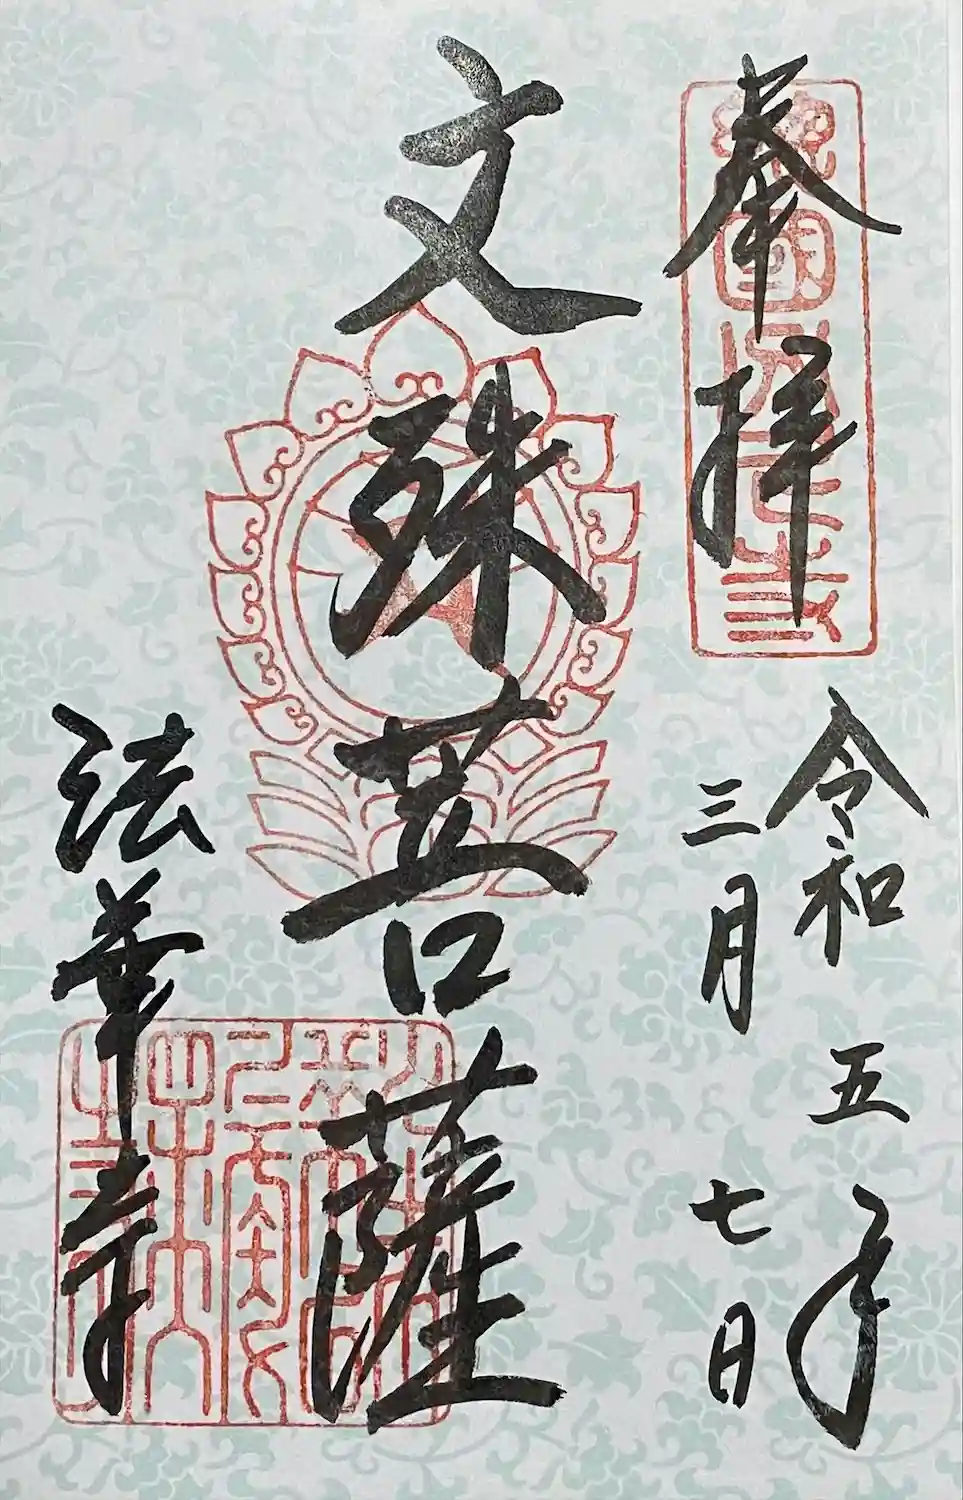 奉拝
令和五年
三月七日
文殊菩薩
法華寺